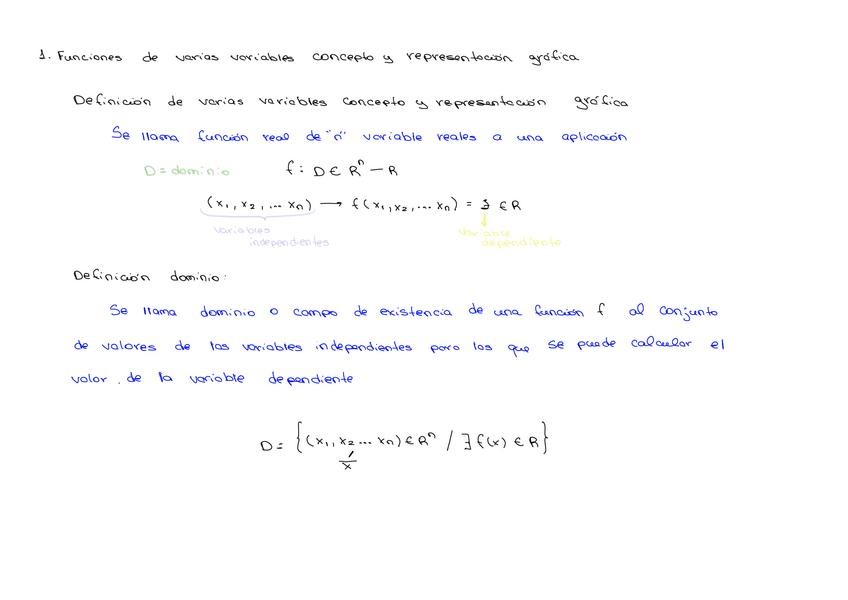 1. Funciones de varias variables concepto y representación gráfica
Definición de varias variables concepto y representación gráfica
Se llama función real de "n" variable reales a una aplicación
D = dominio f: D ∈ Rⁿ — R
(x₁, x₂, ... xₙ) → f(x₁, x₂, ... xₙ) = z ∈ R
variables
independientes
variable
dependiente
Definición dominio:
Se llama dominio o campo de existencia de una función f al conjunto
de valores de las variables independientes para los que se puede calcular el
valor de la variable dependiente
D = {(x₁, x₂ ... xₙ) ∈ Rⁿ / ∃ f(x) ∈ R}
x